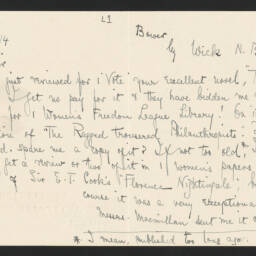 L I
14
Bower
by Wick N. B
just reviewed for 'Vote' your excellent novel, "T
I get no pay for it & they have bidden me
for 1 Women's Freedom League Library. On
tion of "The Ragged Trousered Philanthropists:
d. spare me a copy of it? If not too old,*
get a review or two of it in 1 women's papers
of Sir E. T. Cook's "Florence Nightingale,
course it was a very exceptiona
Messrs. Macmillan sent me it
* I mean, published too long ago.